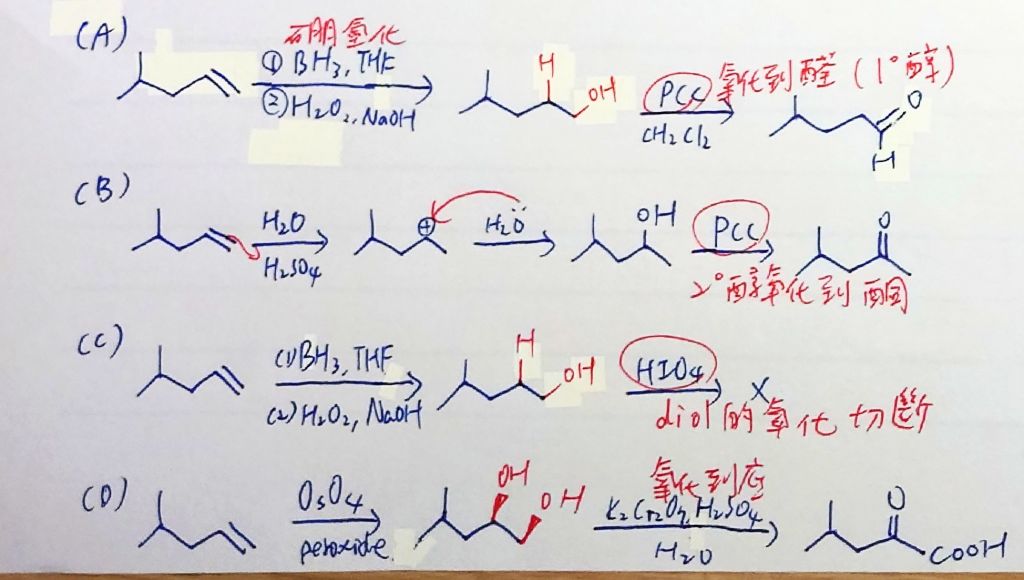 (A)
硼氫化
① BH3, THF
② H2O2, NaOH
H
OH
PCC 氧化到醛 (1°醇)
CH2Cl2
O
H
(B)
H2O
H2SO4
⊕
H2Ö
OH
PCC
2°醇氧化到酮
O
(C)
(1) BH3, THF
(2) H2O2, NaOH
H
OH
HIO4
X
diol的氧化切斷
(D)
OsO4
peroxide
OH
OH
氧化到底
K2Cr2O7, H2SO4
H2O
O
COOH